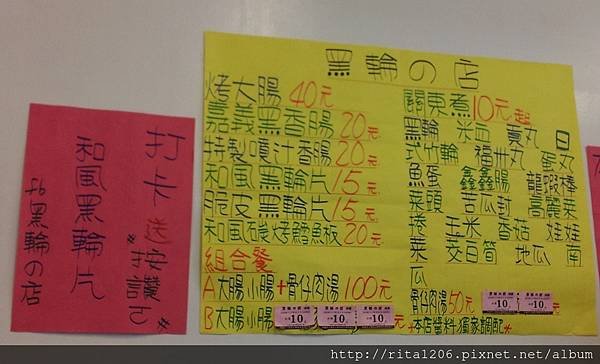 黑輪の店
烤大腸 40元
嘉義黑香腸 20元
特製嘎汁香腸 20元
和風黑輪片 15元
脆皮黑輪片 15元
和風碳烤鱈魚板 20元
組合餐
A大腸小腸+骨仔肉湯 100元
B大腸小腸
關東煮10元起
黑輪 米血 貢丸 日
式竹輪 福州丸 蛋丸
魚蛋 鑫鑫腸 龍蝦棒
菜頭 苦瓜封 高麗菜
捲 玉米 香菇 娃娃
菜 茭白筍 地瓜 南
瓜
骨仔肉湯50元
*本店醬料獨家調配*
10 10 10
10 10
打卡送
*按讚ㄛ
和風黑輪片
at黑輪の店
http://rita1206.pixnet.net/album